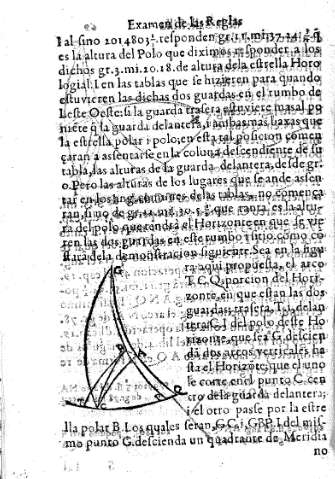 Examen de las Reglas
I al sino 2014803½. responden gr.11.mi.37.24.
es la altura del Polo que diximos responder a los
dichos gr.3.mi.20.18. de altura de la estrella Horo
logial: I en las tablas que se hizieren para quando
estuvieren las dichas dos guardas en el rumbo de
Leste Oeste: si la guarda trasera estuviere mas al po
niete q̃ la guarda delantera, i ambas mas baxas que
la estrella polar i polo; en esta tal posicion comen
çaran a assentarse en la coluna descendiente de la
tabla, las alturas de la guarda delantera, desde gr.
0. Pero las alturas de los lugares que se ande assen
tar en los de las tablas, no comença
ran, sino de es la altu
ra del polo que tendra el Horizonte en que se vie
ren las dos guardas en este rumbo i sitio: como cō
stará de la demonstracion siguiente. Sea en la figu
ra aqui propuesta, el arco
T.C.Q. porcion del Hori-
zonte, en que estan las dos
guardas: trasera T. i delan
tera C. i del polo deste Ho
rizonte, que sea G. descien
dā dos arcos verticales ha
sta el Horizōte; que el uno
le corte en el punto C. cen
tro de la guarda delantera;
i el otro passe por la estre
lla polar B. Los quales seran, G.C. i GBP. I del mis-
mo punto G. descienda un quadrante de Meridia
no
G
T
C
P
Q